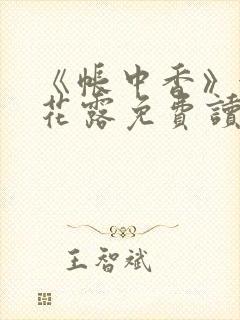 《帳中香》
花露免費讀
王智斌